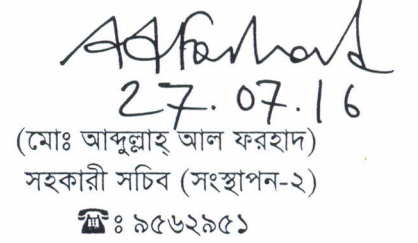 AAFarhad
27.07.16
(মোঃ আব্দুল্লাহ্ আল ফরহাদ)
সহকারী সচিব (সংস্থাপন-২)
☎ঃ ৯৫৬২৯৫১